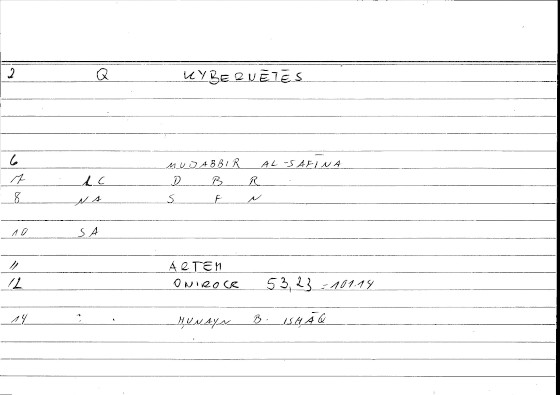 2 Q KYBERNĒTĒS
6 MUDABBIR AL-SAFĪNA
7 LC D B R
8 NA S F N
10 SA
11 ARTEM
12 ONIROCR 53,23 = 101.14
14 : . ḤUNAYN B. ISḤĀQ